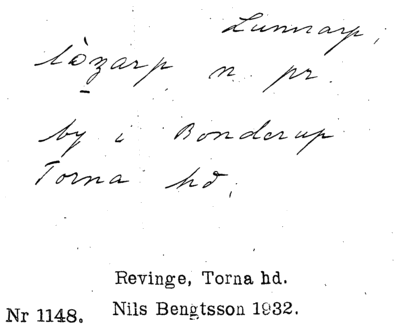 Lunnarp,
lòzarp n pr.
by i Bonderup
Torna hd.
Revinge, Torna hd.
Nr 1148. Nils Bengtsson 1932.